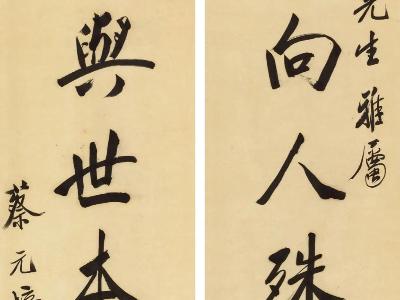 先生雅屬
向人殊
與世本
蔡元培